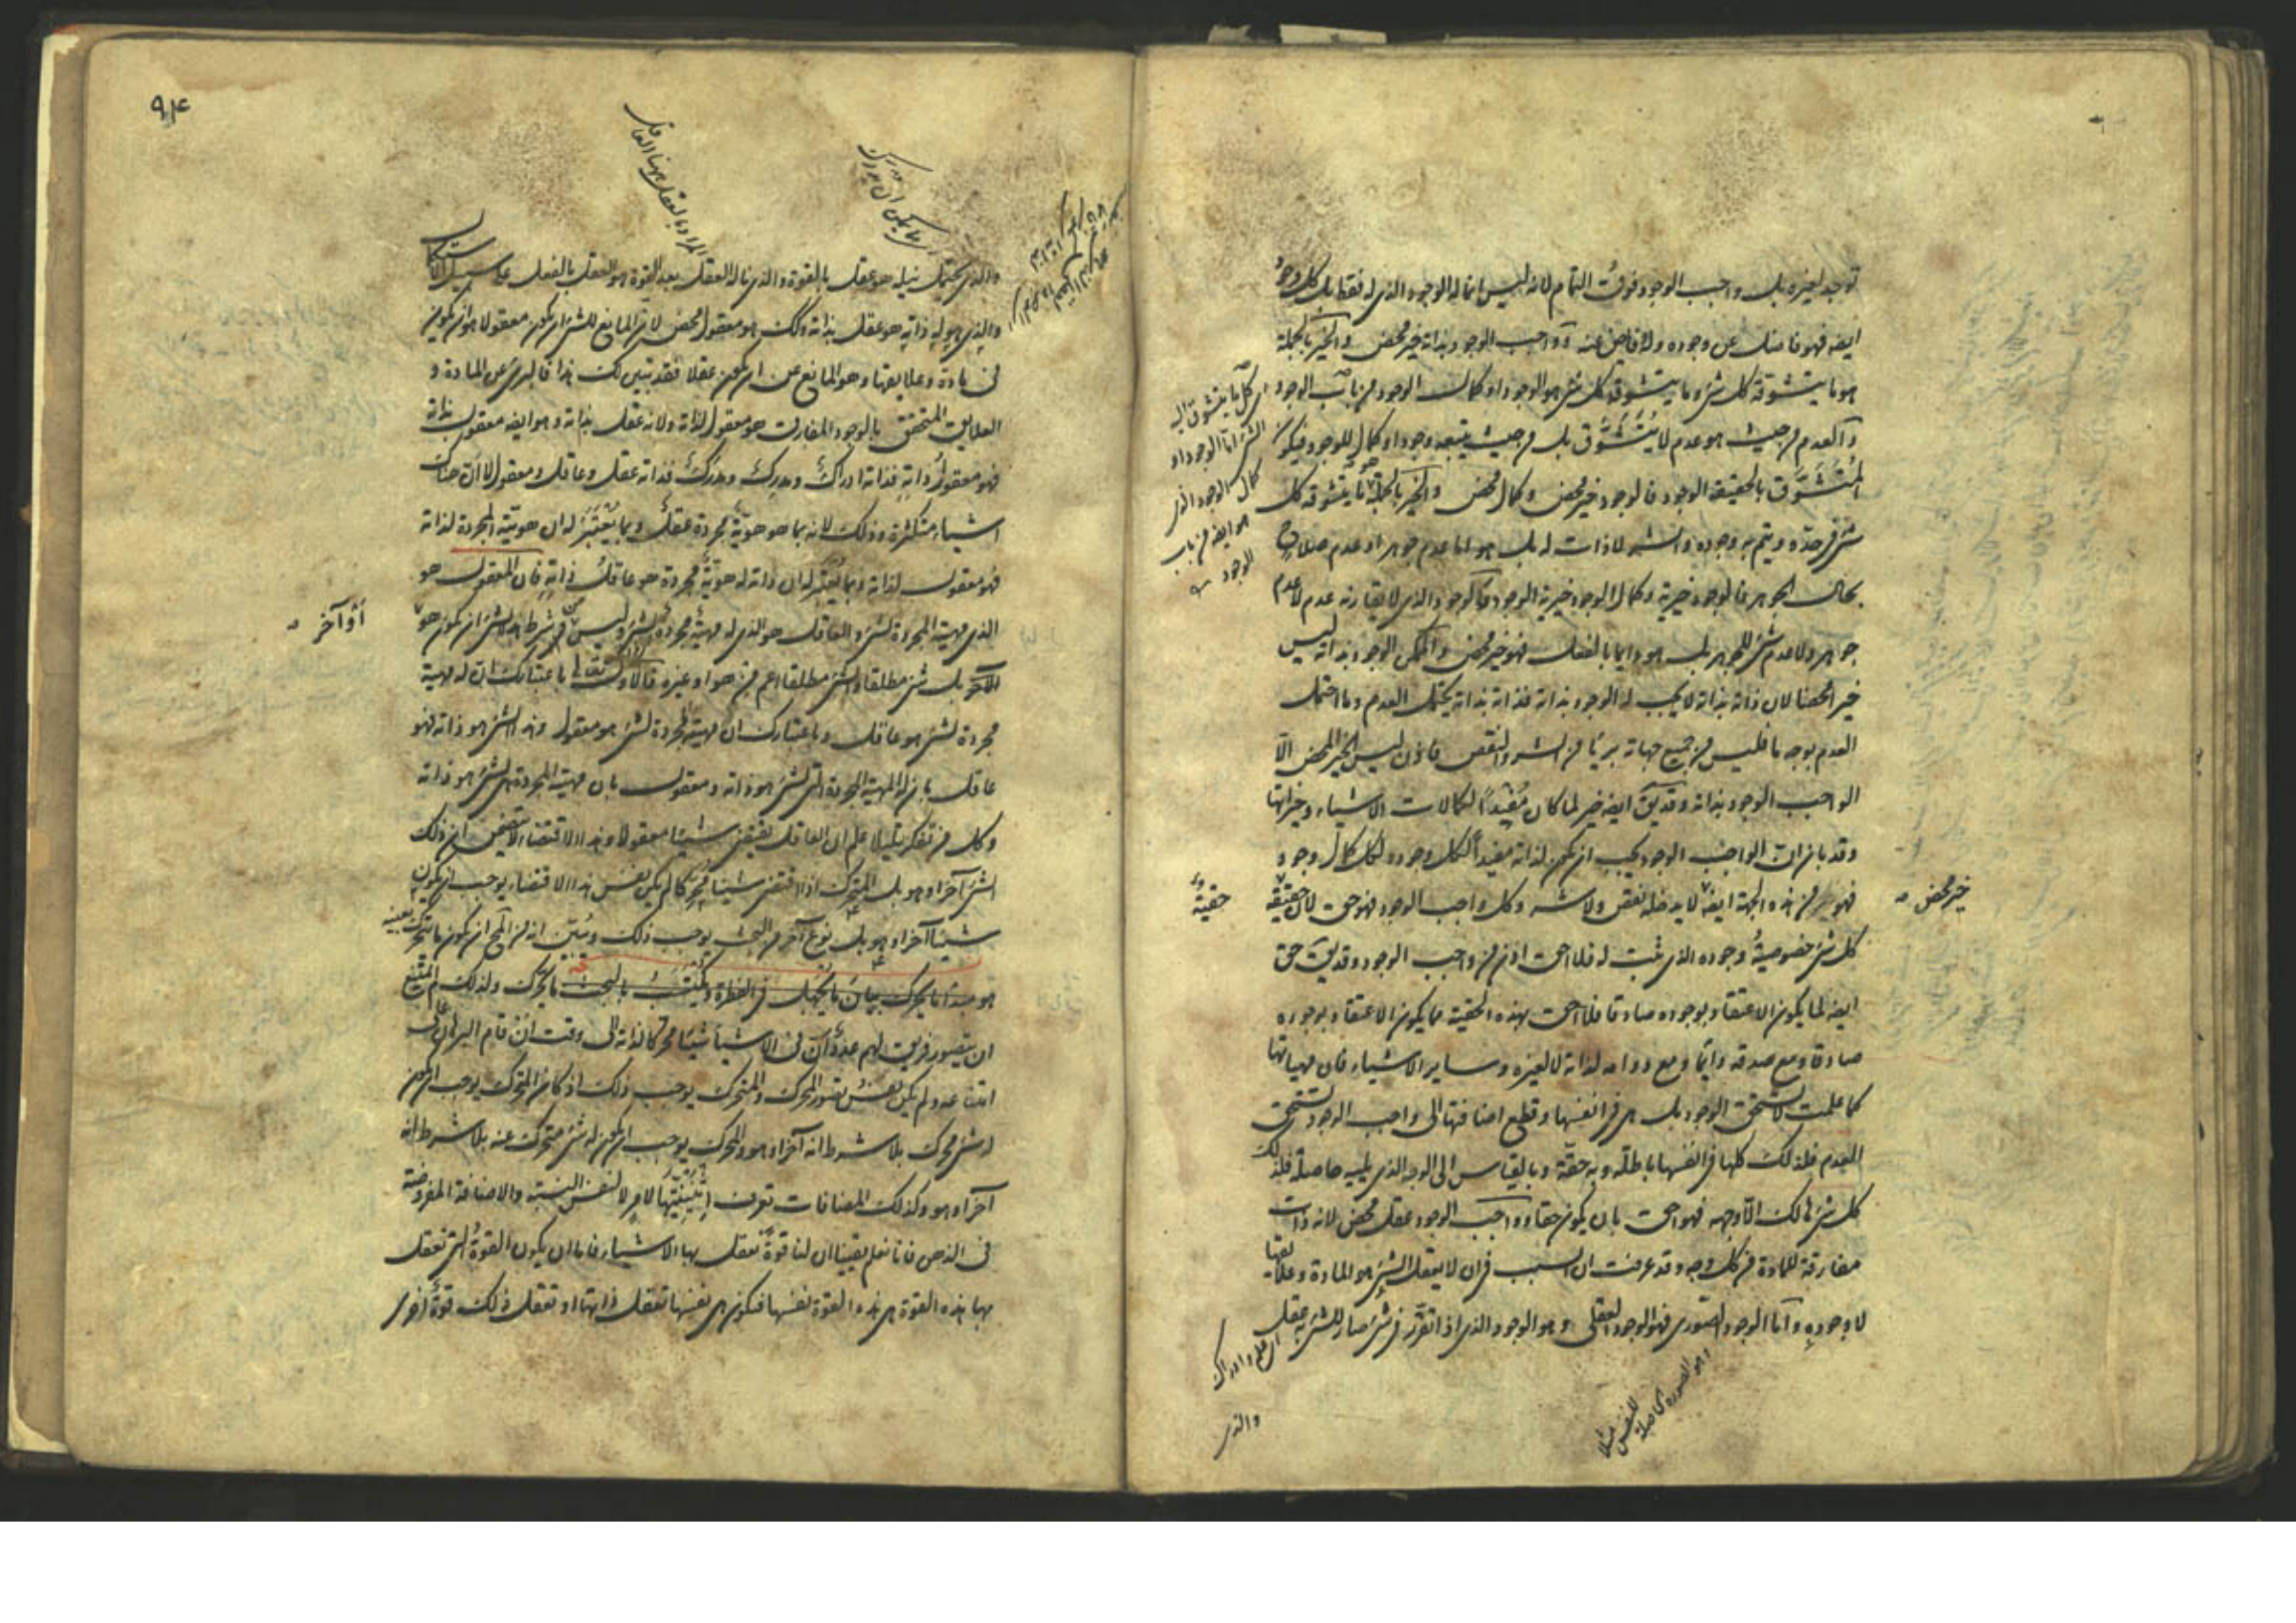 توجد لغيره بل واجب الوجود فوق التمام لانه ليس انما له الوجود الذي له فقط بل كل وجود
ايضه فهو فاضل عن وجوده وله فايض عنه وواجب الوجود بذاته خير محض والخير بالجملة
هو ما يتشوقه كل شئ وما يتشوقه كل شئ هو الوجود او كمال الوجود من باب الوجود
والعدم من حيث هو عدم لا يتشوق بل من حيث يتبعه وجود او كمال للوجود فيكون
المتشوق بالحقيقة الوجود فالوجود خير محض وكمال محض والخير بالجملة هو ما يتشوقه كل
شئ في حده ويتم به وجوده والشر لا ذات له بل هو اما عدم جوهر او عدم صلاح
بحال الجوهر فالوجود خيرية وكمال الوجود خيرية الوجود والوجود الذي لا يقارنه عدم لا عدم
جوهر ولا عدم شئ للجوهر بل هو دايما بالفعل فهو خير محض والممكن الوجود بذاته ليس
خيرا محضا لان ذاته بذاته لا يجب له الوجود بذاته فذاته بذاته يحتمل العدم وما احتمل
العدم بوجه ما فليس من جميع جهاته بريا من الشر والنقص فاذن ليس الخير المحض الا
الواجب الوجود بذاته وقد يق ايضه خير لما كان مفيدا لكمالات الاشياء وخيراتها
وقد بان ان الواجب الوجود يجب ان يكون لذاته مفيدا لكل وجود ولكل كمال وجود
فهو من هذه الجهة ايضه لا يدخله نقص ولا شر وكل واجب الوجود فهو حق لان حقيقة
كل شئ خصوصية وجوده الذي ثبت له فلا احق اذن من واجب الوجود وقد يق حق
ايضه لما يكون الاعتقاد بوجوده صادقا فلا احق بهذه الحقية مما يكون الاعتقاد بوجوده
صادقا ومع صدقه دايما ومع دوامه لذاته لا لغيره وساير الاشياء فان مهياتها
كما علمت لا تستحق الوجود بل هي في انفسها وقطع اضافتها الى واجب الوجود تستحق
العدم فلذلك كلها في انفسها باطلة وبه حقة وبالقياس الى الوجه الذي يليه حاصلة فلذلك
كل شئ هالك الا وجهه فهو احق بان يكون حقا وواجب الوجود عقل محض لانه ذات
مفارقة للمادة من كل وجه وقد عرفت ان السبب في ان لا يعقل الشئ هو المادة وعلايقها
لا وجوده واما الوجود الصوري فهو الوجود العقلي وهو الوجود الذي اذا تقرر في شئ صار للشئ به عقل
والذي
كل ما يتشوق اليه
الشئ اما الوجود او
كمال الوجود الذي
هو ايضه من باب
الوجود
حقية
خير محض
اي علم وادراك
وهو الصورة الحاصلة
للنفس مثلا
٩٤
المراد بالعقل ههنا العاقل
والذي يحتمل نيله هو عقل بالقوة والذي ناله العقل بعد القوة هو العقل بالفعل على سبيل الاستكمال
والذي هو له ذاته هو عقل بذاته وكذلك هو معقول محض لان المانع للشئ ان يكون معقولا هو ان يكون
في مادة وعلايقها وهو المانع عن ان يكون عقلا فقد تبين لك هذا فالبرئ عن المادة و
العلايق المتحقق بالوجود المفارق هو معقول لذاته ولانه عقل بذاته وهو ايضه معقول بذاته
فهو معقول ذاته فذاته ادراك ومدرك ومدرك فذاته عقل وعاقل ومعقول لا ان هناك
اشياء متكثرة وذلك لانه بما هو هوية مجردة عقل وبما يعتبر له ان هويته المجردة لذاته
فهو معقول لذاته وبما يعتبر له ان ذاته له هوية مجردة هو عاقل ذاته فان المعقول هو
الذي مهيته المجردة لشئ والعاقل هو الذي له مهية مجردة لشئ وليس من شرط هذا الشئ ان يكون هو
الآخر بل شئ مطلقا والشئ مطلقا اعم من هو او غيره فالاول تعالى باعتبارك ان له مهية
مجردة لشئ هو عاقل وباعتبارك ان مهيته المجردة لشئ هو معقول وهذا الشئ هو ذاته فهو
عاقل بان له المهية المجردة التي لشئ هو ذاته ومعقول بان مهيته المجردة هي لشئ هو ذاته
وكل من تفكر قليلا علم ان العاقل يقتضي شيئا معقولا وهذا الاقتضاء لا يتضمن ان ذلك
الشئ آخر او هو بل المتحرك اذا اقتضى شيئا محركا لم يكن نفس هذا الاقتضاء يوجب ان يكون
شيئا آخر او هو بل نوع آخر من البحث يوجب ذلك وبين انه من المحال ان يكون ما يتحرك بعينه
هو مبدأ ما يحرك ولذلك لم يمتنع
ان يتصور فريق لهم عدد ان في الاشياء شيئا محركا لذاته الى وقت ان قام البرهان على
امتناعه ولم يكن نفس تصور المحرك والمتحرك يوجب ذلك اذ كان المتحرك يوجب ان يكون
له شئ محرك بلا شرط انه آخر او هو والمحرك يوجب ان يكون له شئ متحرك عنه بلا شرط انه
آخر او هو وكذلك المضافات تعرف اثنينيتها لامر لا لنفس النسبة والاضافة المفروضة
في الذهن فانا نعلم يقينا ان لنا قوة نعقل بها الاشياء فاما ان يكون القوة التي نعقل
بها هذه القوة هي هذه القوة نفسها فيكون هي نفسها تعقل ذاتها او تعقل ذلك قوة اخرى
او آخر